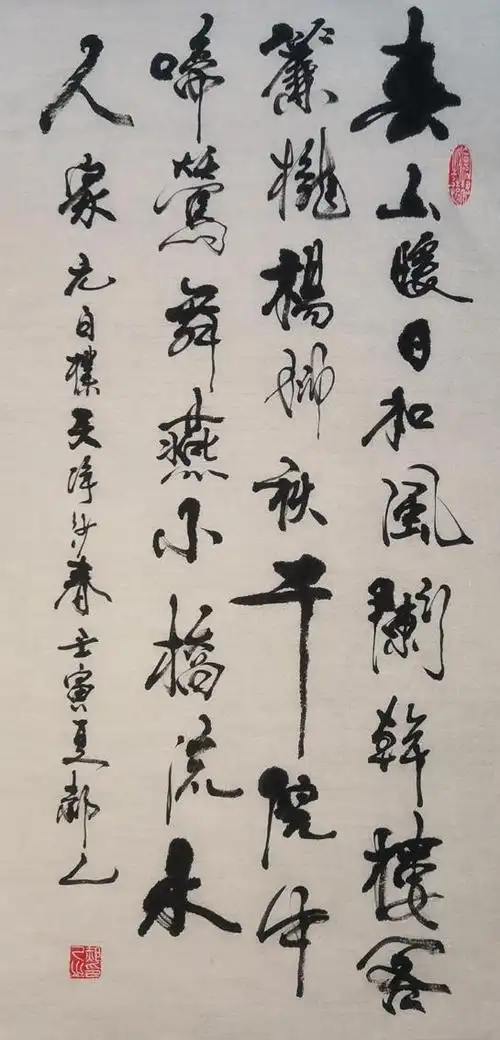 春山暖日和風闌幹樓閣
簾櫳楊柳秋千院中
啼鶯舞燕小橋流水
人家元白樸天净沙春壬寅夏郝